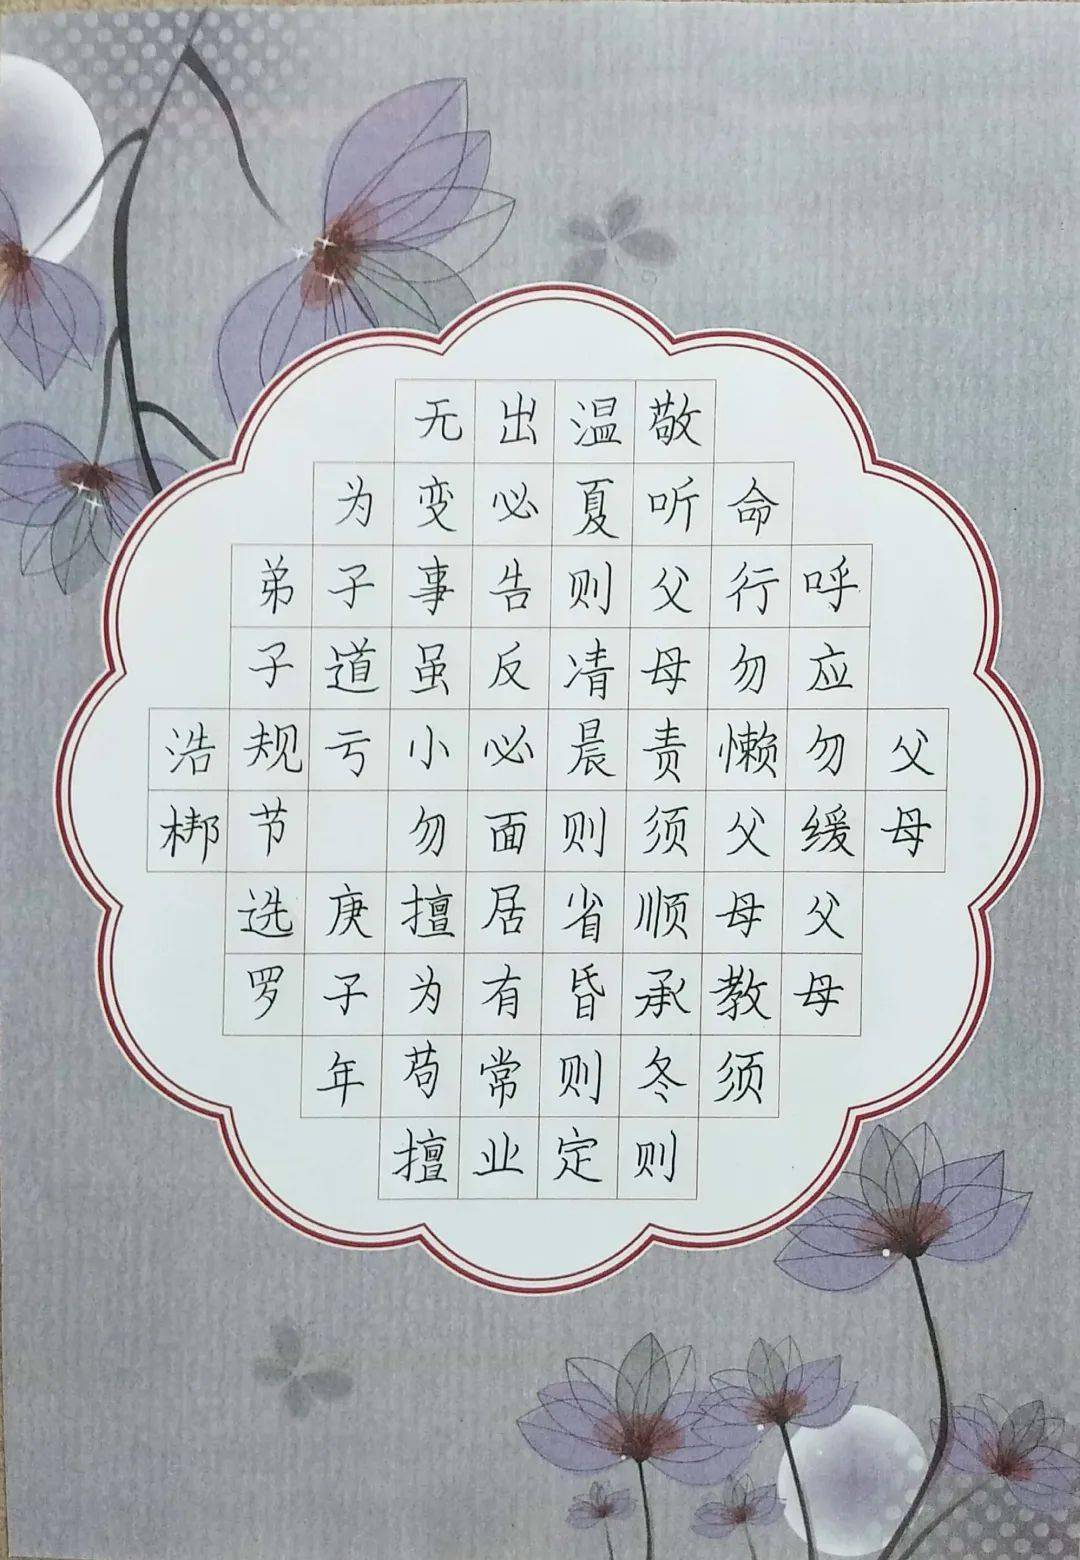 父母
呼应勿缓父母
命行勿懒父母教须
敬听父母责须顺承冬则
温夏则凊晨则省昏则定
出必告反必面居有常业
无变事虽小勿擅为苟擅
为子道亏 庚子年
弟子规节选罗
浩梆